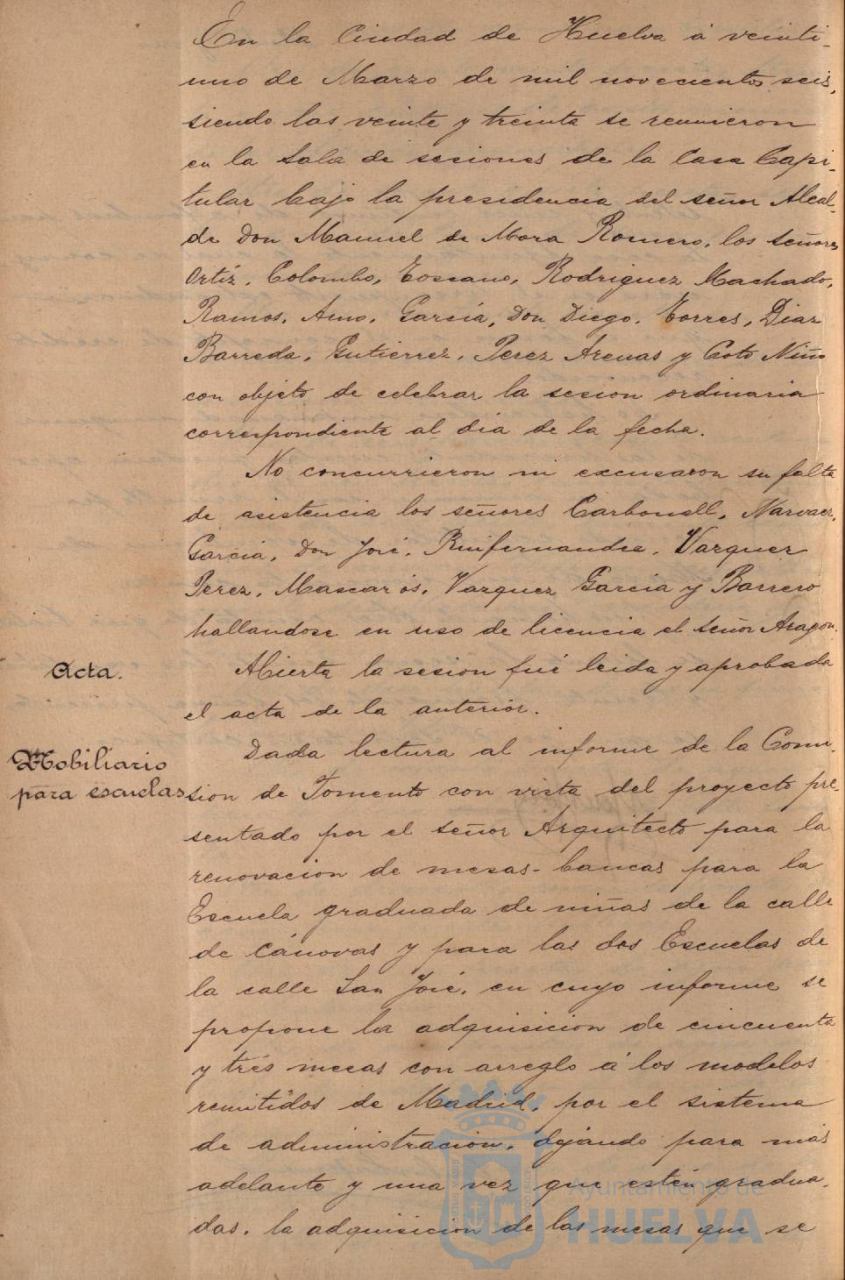 En la Ciudad de Huelva á veinti-
uno de Marzo de mil novecientos seis,
siendo las veinte y treinta se reunieron
en la Sala de sesiones de la Casa Capi-
tular bajo la presidencia del señor Alcal-
de Don Manuel de Mora Romero, los señores
Ortíz, Colombo, Toscano, Rodriguez Machado,
Ramos, Amo, García, Don Diego, Torres, Diaz
Barreda, Gutiérrez, Perez Arenas y Coto Niño
con objeto de celebrar la sesion ordinaria
correspondiente al dia de la fecha.
No concurrieron ni excusaron su falta
de asistencia los señores Carbonell, Narvaez,
García, Don José, Ruifernandez, Vazquez
Perez, Mascarós, Vazquez García y Barrero
hallandose en uso de licencia el señor Aragon.
Acta.
Abierta la sesion fué leida y aprobada
el acta de la anterior.
Mobiliario
para escuelas
Dada lectura al informe de la Comi-
sion de Fomento con vista del proyecto pre-
sentado por el señor Arquitecto para la
renovacion de mesas-bancas para la
Escuela graduada de niñas de la calle
de Cánovas y para las dos Escuelas de
la calle San José, en cuyo informe se
propone la adquisicion de cincuenta
y tres mesas con arreglo á los modelos
remitidos de Madrid, por el sistema
de administracion, dejando para más
adelante y una vez que estén gradua-
das, la adquisicion de las mesas que se
Ayuntamiento de
HUELVA